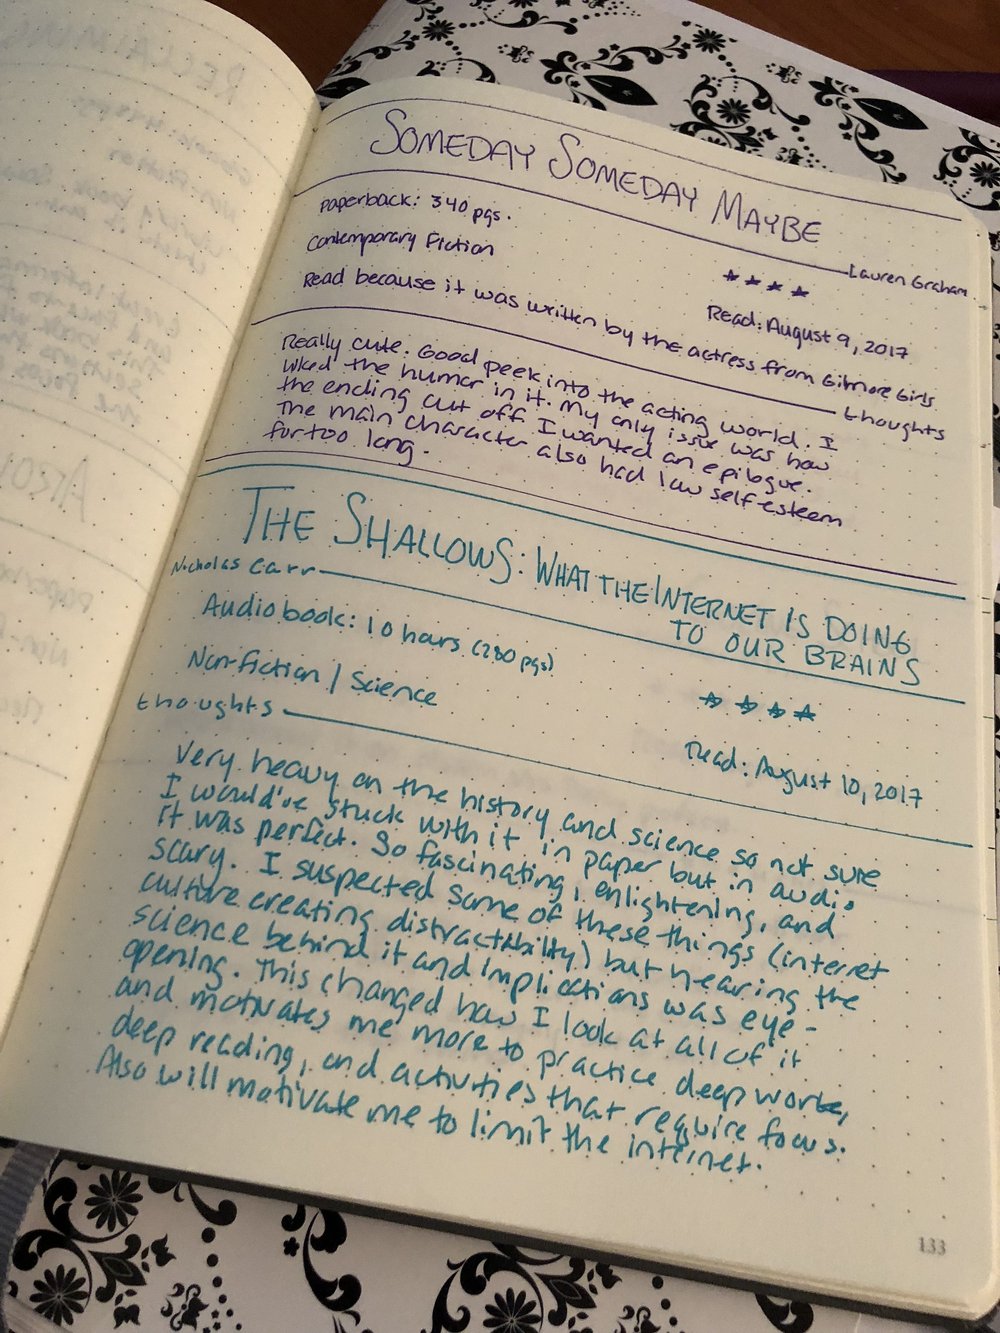 SOMEDAY SOMEDAY MAYBE
Lauren Graham
Paperback: 340 pgs.
Contemporary Fiction
★★★★
Read: August 9, 2017
Read because it was written by the actress from Gilmore Girls
thoughts
Really cute. Good peek into the acting world. I
liked the humor in it. My only issue was how
the ending cut off. I wanted an epilogue.
The main character also had low self-esteem
for too long.
THE SHALLOWS: WHAT THE INTERNET IS DOING
TO OUR BRAINS
Nicholas Carr
Audiobook: 10 hours (280 pgs)
Non-fiction / Science
★★★★
Read: August 10, 2017
thoughts
Very heavy on the history and science so not sure
I would've stuck with it in paper but in audio
it was perfect. So fascinating, enlightening, and
scary. I suspected some of these things (internet
culture creating distractibility) but hearing the
science behind it and implications was eye-
opening. This changed how I look at all of it
and motivates me more to practice deep work,
deep reading, and activities that require focus.
Also will motivate me to limit the internet.
133